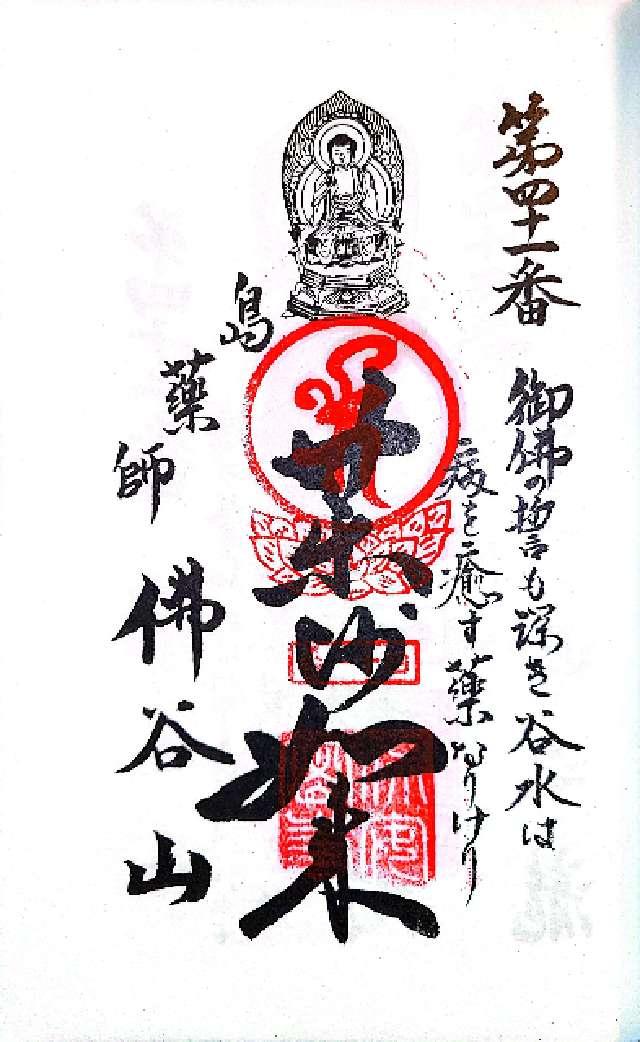 第四十一番
御佛の誓も深き谷水は
病を癒す藥なりけり
薬师如来
島
藥
師
佛谷山